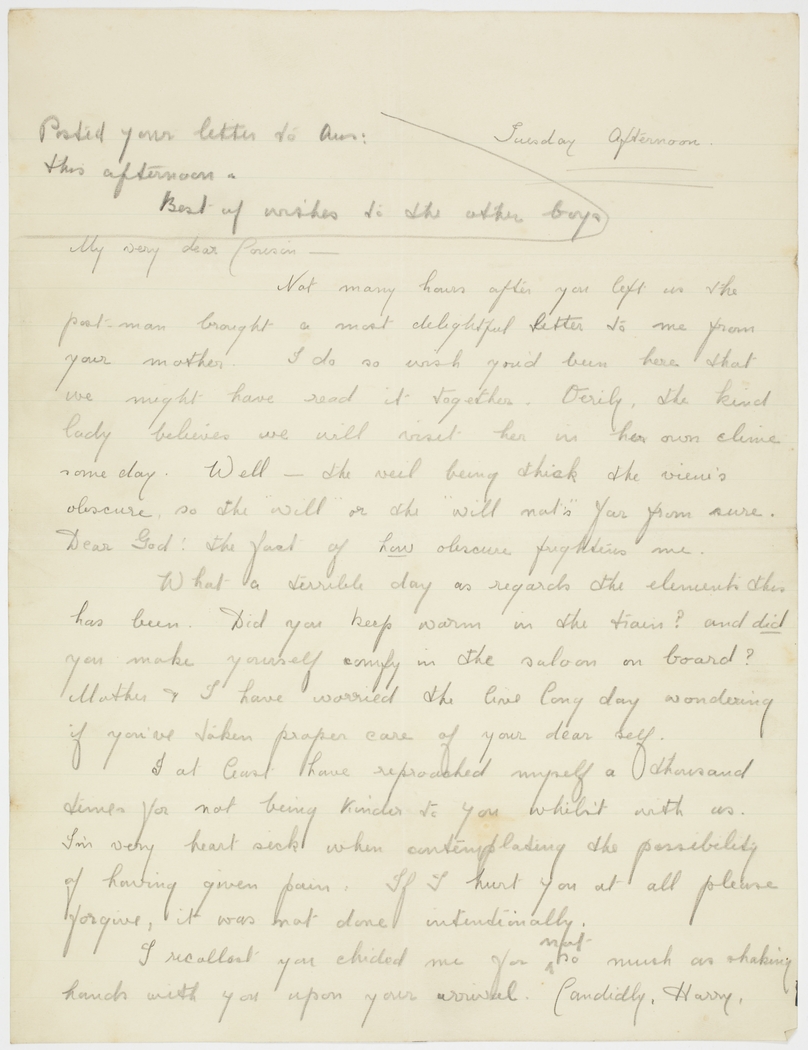 Posted your letter to Aus:
this afternoon.
Best of wishes to the other boys
Tuesday Afternoon.
My very dear Cousin —
Not many hours after you left us the
post-man brought a most delightful letter to me from
your mother. I do so wish you'd been here that
we might have read it together. Verily, the kind
lady believes we will visit her in her own clime
some day. Well — the veil being thick the view's
obscure, so the "will" or the "will not's" far from sure.
Dear God! the fact of how obscure frightens me.
What a terrible day as regards the elements this
has been. Did you keep warm in the train? and did
you make yourself comfy in the saloon on board?
Mother & I have worried the live long day wondering
if you've taken proper care of your dear self.
I at least have reproached myself a thousand
times for not being kinder to you whilst with us.
I'm very heart sick when contemplating the possibility
of having given pain. If I hurt you at all please
forgive, it was not done intentionally.
I recollect you chided me for not so much as shaking
hands with you upon your arrival. Candidly, Harry,